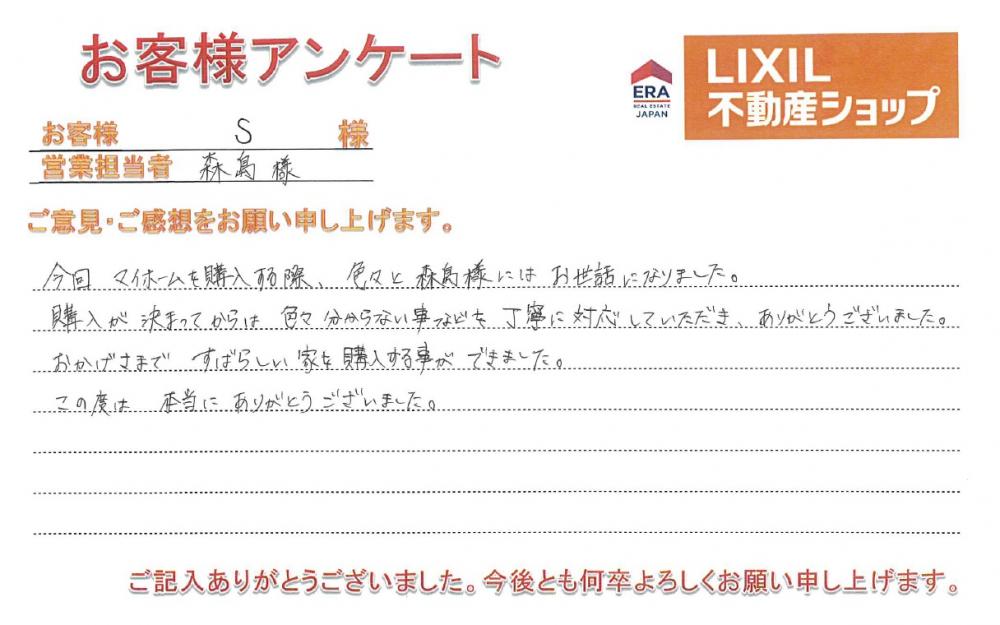 お客様アンケート
ERA
REAL ESTATE
JAPAN
LIXIL
不動産ショップ
お客様 S 様
営業担当者 森島様
ご意見・ご感想をお願い申し上げます。
今回 マイホームを購入する際、色々と森島様にはお世話になりました。
購入が決まってからは色々分からない事などを丁寧に対応していただき、ありがとうございました。
おかげさまで すばらしい家を購入する事ができました。
この度は 本当にありがとうございました。
ご記入ありがとうございました。今後とも何卒よろしくお願い申し上げます。